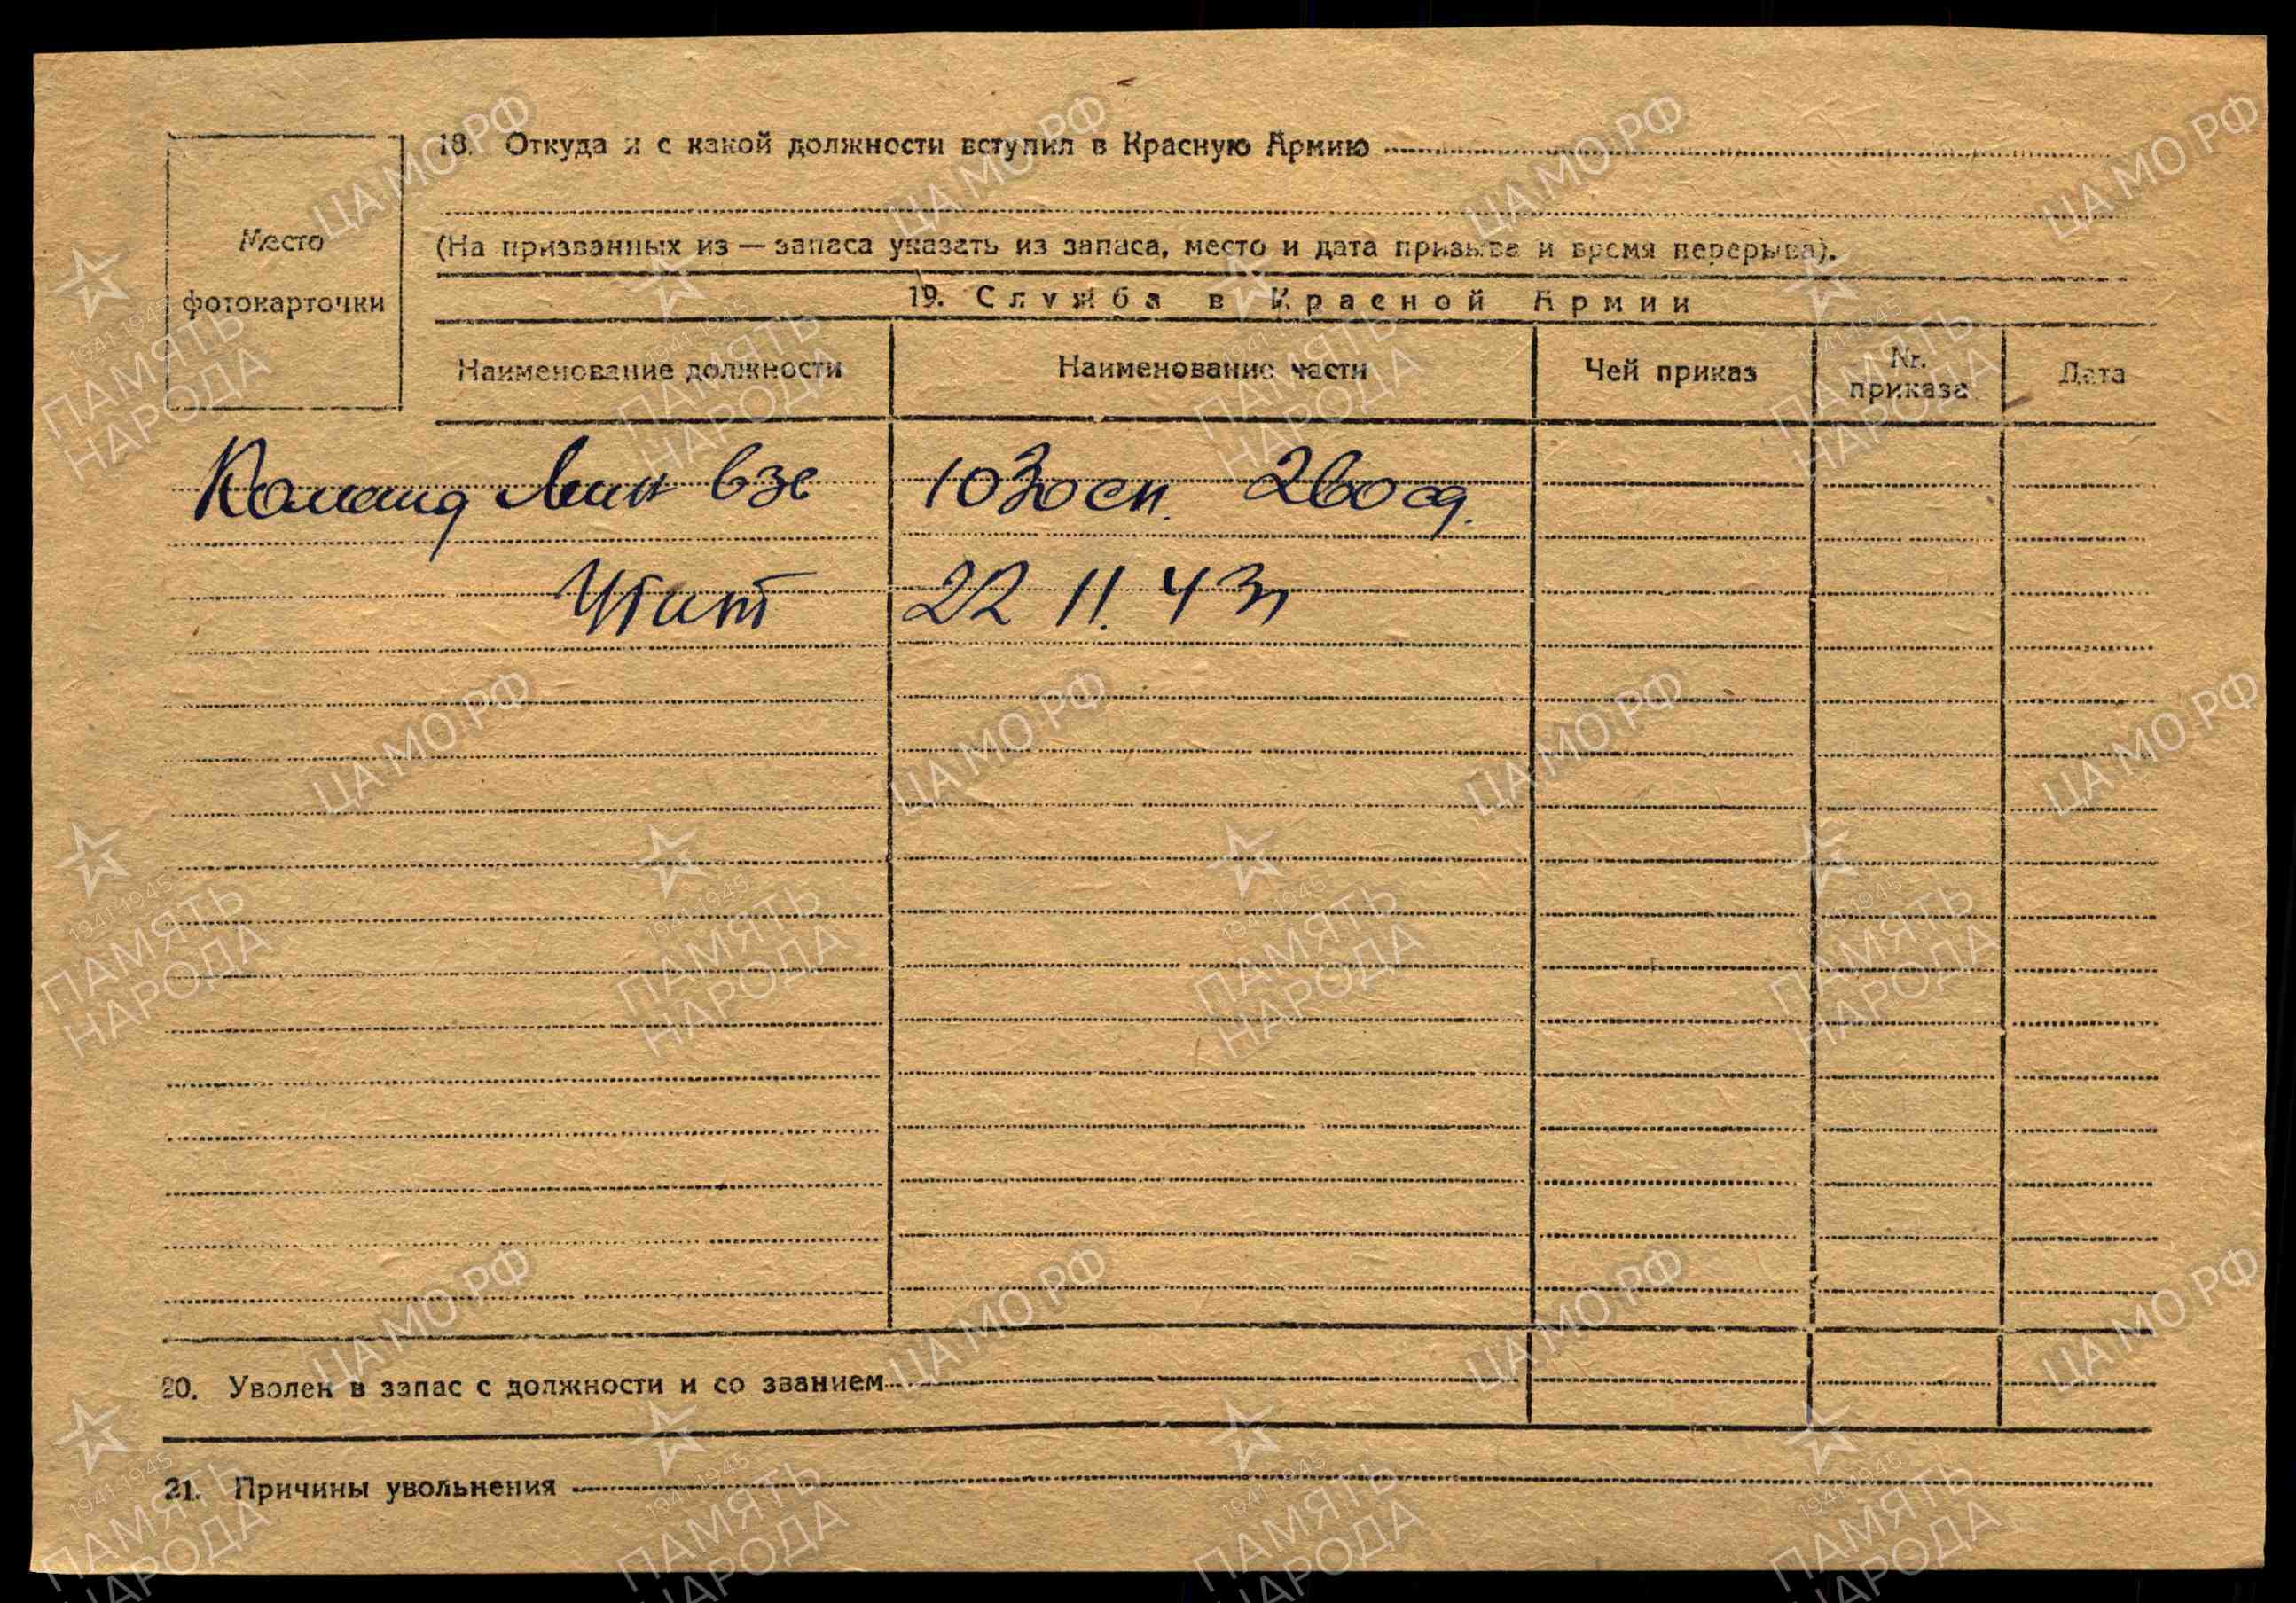 18. Откуда и с какой должности вступил в Красную Армию
(На призванных из — запаса указать из запаса, место и дата призыва и время перерыва).
Место
фотокарточки
19. Служба в Красной Армии
Наименование должности Наименование части Чей приказ Nr. приказа Дата
Команд Мин взв 1030 сп. 260 сд.
Убит 22 11. 43 г
20. Уволен в запас с должности и со званием
21. Причины увольнения
ЦАМО.РФ
1941-1945
ПАМЯТЬ
НАРОДА